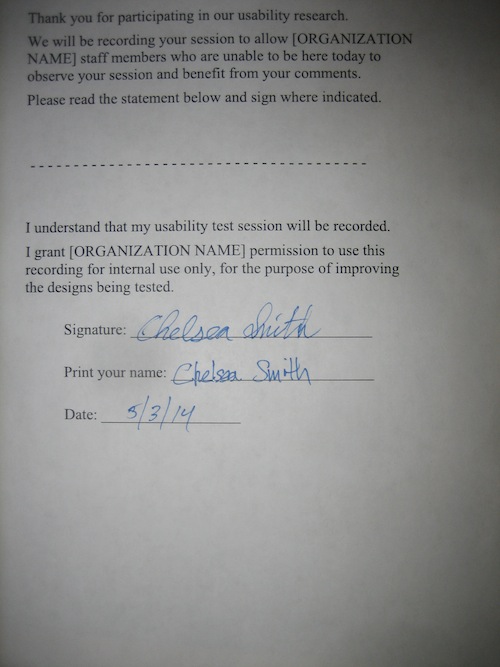 Thank you for participating in our usability research.
We will be recording your session to allow [ORGANIZATION
NAME] staff members who are unable to be here today to
observe your session and benefit from your comments.
Please read the statement below and sign where indicated.
I understand that my usability test session will be recorded.
I grant [ORGANIZATION NAME] permission to use this
recording for internal use only, for the purpose of improving
the designs being tested.
Signature: Chelsea Smith
Print your name: Chelsea Smith
Date: 5/3/14